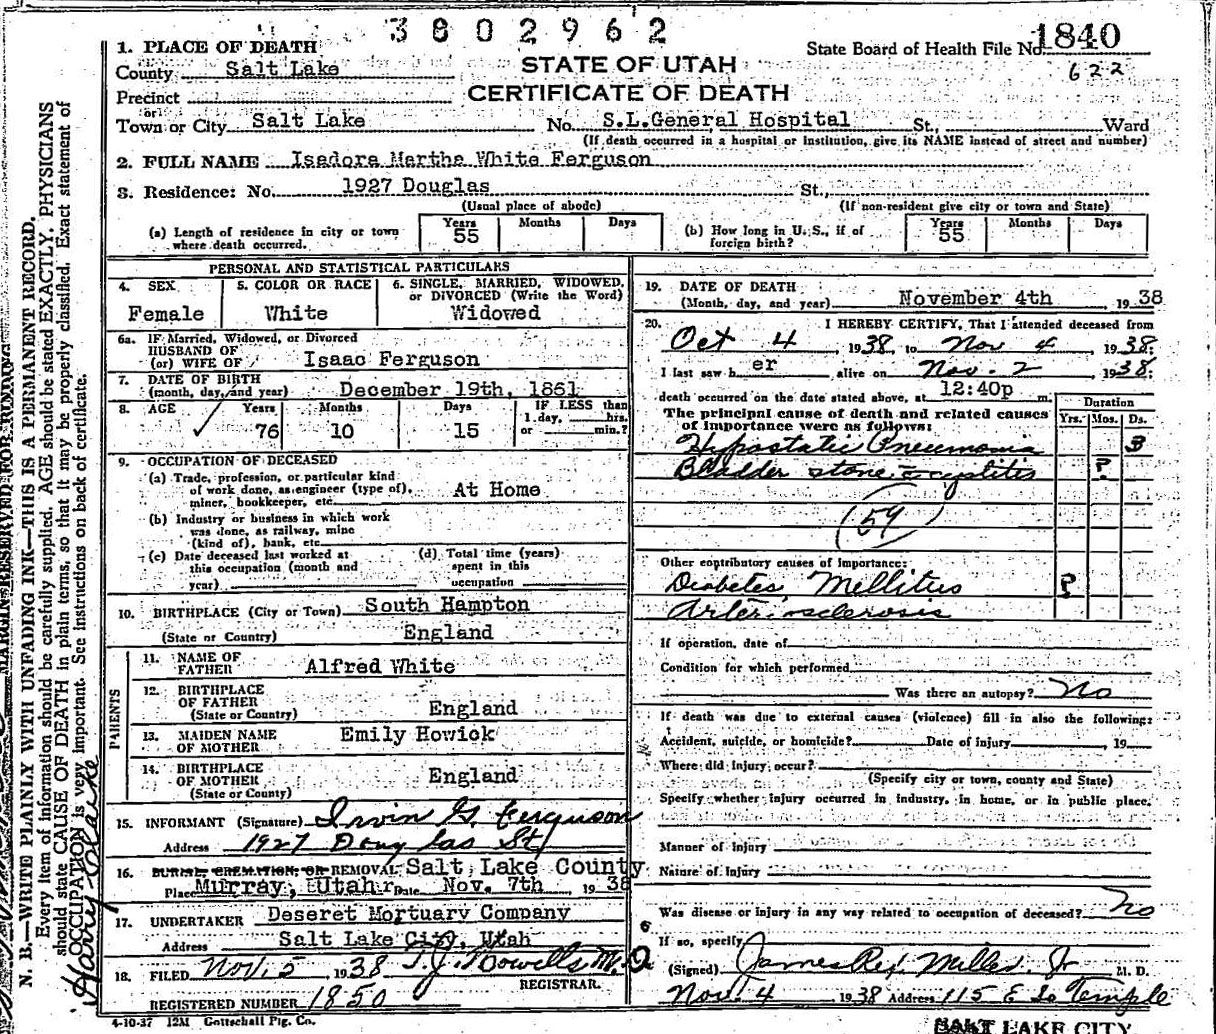 3802962
1. PLACE OF DEATH
State Board of Health File No. 1840
622
County Salt Lake
STATE OF UTAH
Precinct
CERTIFICATE OF DEATH
or
Town or City Salt Lake No. S.L.General Hospital St., Ward
(If death occurred in a hospital or institution, give its NAME instead of street and number)
2. FULL NAME Isadora Martha White Ferguson
3. Residence: No. 1927 Douglas St.,
(Usual place of abode) (If non-resident give city or town and State)
(a) Length of residence in city or town where death occurred. Years 55 Months Days
(b) How long in U. S., if of foreign birth? Years 55 Months Days
PERSONAL AND STATISTICAL PARTICULARS
4. SEX Female
5. COLOR OR RACE White
6. SINGLE, MARRIED, WIDOWED, or DIVORCED (Write the Word) Widowed
6a. IF Married, Widowed, or Divorced
HUSBAND OF
(or) WIFE OF Isaac Ferguson
7. DATE OF BIRTH
(month, day, and year) December 19th, 1861
8. AGE Years 76 Months 10 Days 15 IF LESS than 1 day, hrs. or min.?
9. OCCUPATION OF DECEASED
(a) Trade, profession, or particular kind
of work done, as engineer (type of), At Home
miner, bookkeeper, etc.
(b) Industry or business in which work
was done, as railway, mine
(kind of), bank, etc.
(c) Date deceased last worked at this occupation (month and year)
(d) Total time (years) spent in this occupation
10. BIRTHPLACE (City or Town) South Hampton
(State or Country) England
PARENTS
11. NAME OF FATHER Alfred White
12. BIRTHPLACE OF FATHER (State or Country) England
13. MAIDEN NAME OF MOTHER Emily Howick
14. BIRTHPLACE OF MOTHER (State or Country) England
15. INFORMANT (Signature) Irvin G. Ferguson
Address 1927 Douglas St
16. BURIAL, CREMATION, OR REMOVAL Salt Lake County
Place Murray, Utah Date Nov. 7th 1938
17. UNDERTAKER Deseret Mortuary Company
Address Salt Lake City, Utah
18. FILED Nov. 5, 1938 T. J. Howells M.D.
REGISTRAR.
REGISTERED NUMBER 1850
4-10-37 12M Gottschall Ptg. Co.
19. DATE OF DEATH
(Month, day, and year) November 4th 1938
20. I HEREBY CERTIFY, That I attended deceased from
Oct 4, 1938, to Nov 4 1938;
I last saw her alive on Nov. 2 1938;
death occurred on the date stated above, at 12:40p m.
The principal cause of death and related causes
of importance were as follows:
Duration
Yrs. Mos. Ds.
Hypostatic Pneumonia 3
Bladder stone c cystitis ?
(54)
Other contributory causes of importance:
Diabetes Mellitus ?
Arteriosclerosis
If operation, date of
Condition for which performed
Was there an autopsy? No
If death was due to external causes (violence) fill in also the following:
Accident, suicide, or homicide? Date of injury , 19
Where did injury occur?
(Specify city or town, county and State)
Specify whether injury occurred in industry, in home, or in public place.
Manner of injury
Nature of Injury
Was disease or injury in any way related to occupation of deceased? No
6
If so, specify
(Signed) James Rex Miller Jr M. D.
Nov. 4, 1938 Address 115 E So Temple
SALT LAKE CITY
MARGIN RESERVED FOR BINDING
N. B.—WRITE PLAINLY WITH UNFADING INK—THIS IS A PERMANENT RECORD.
Every item of information should be carefully supplied. AGE should be stated EXACTLY. PHYSICIANS
should state CAUSE OF DEATH in plain terms, so that it may be properly classified. Exact statement of
OCCUPATION is very important. See instructions on back of certificate.
Harry Clarke